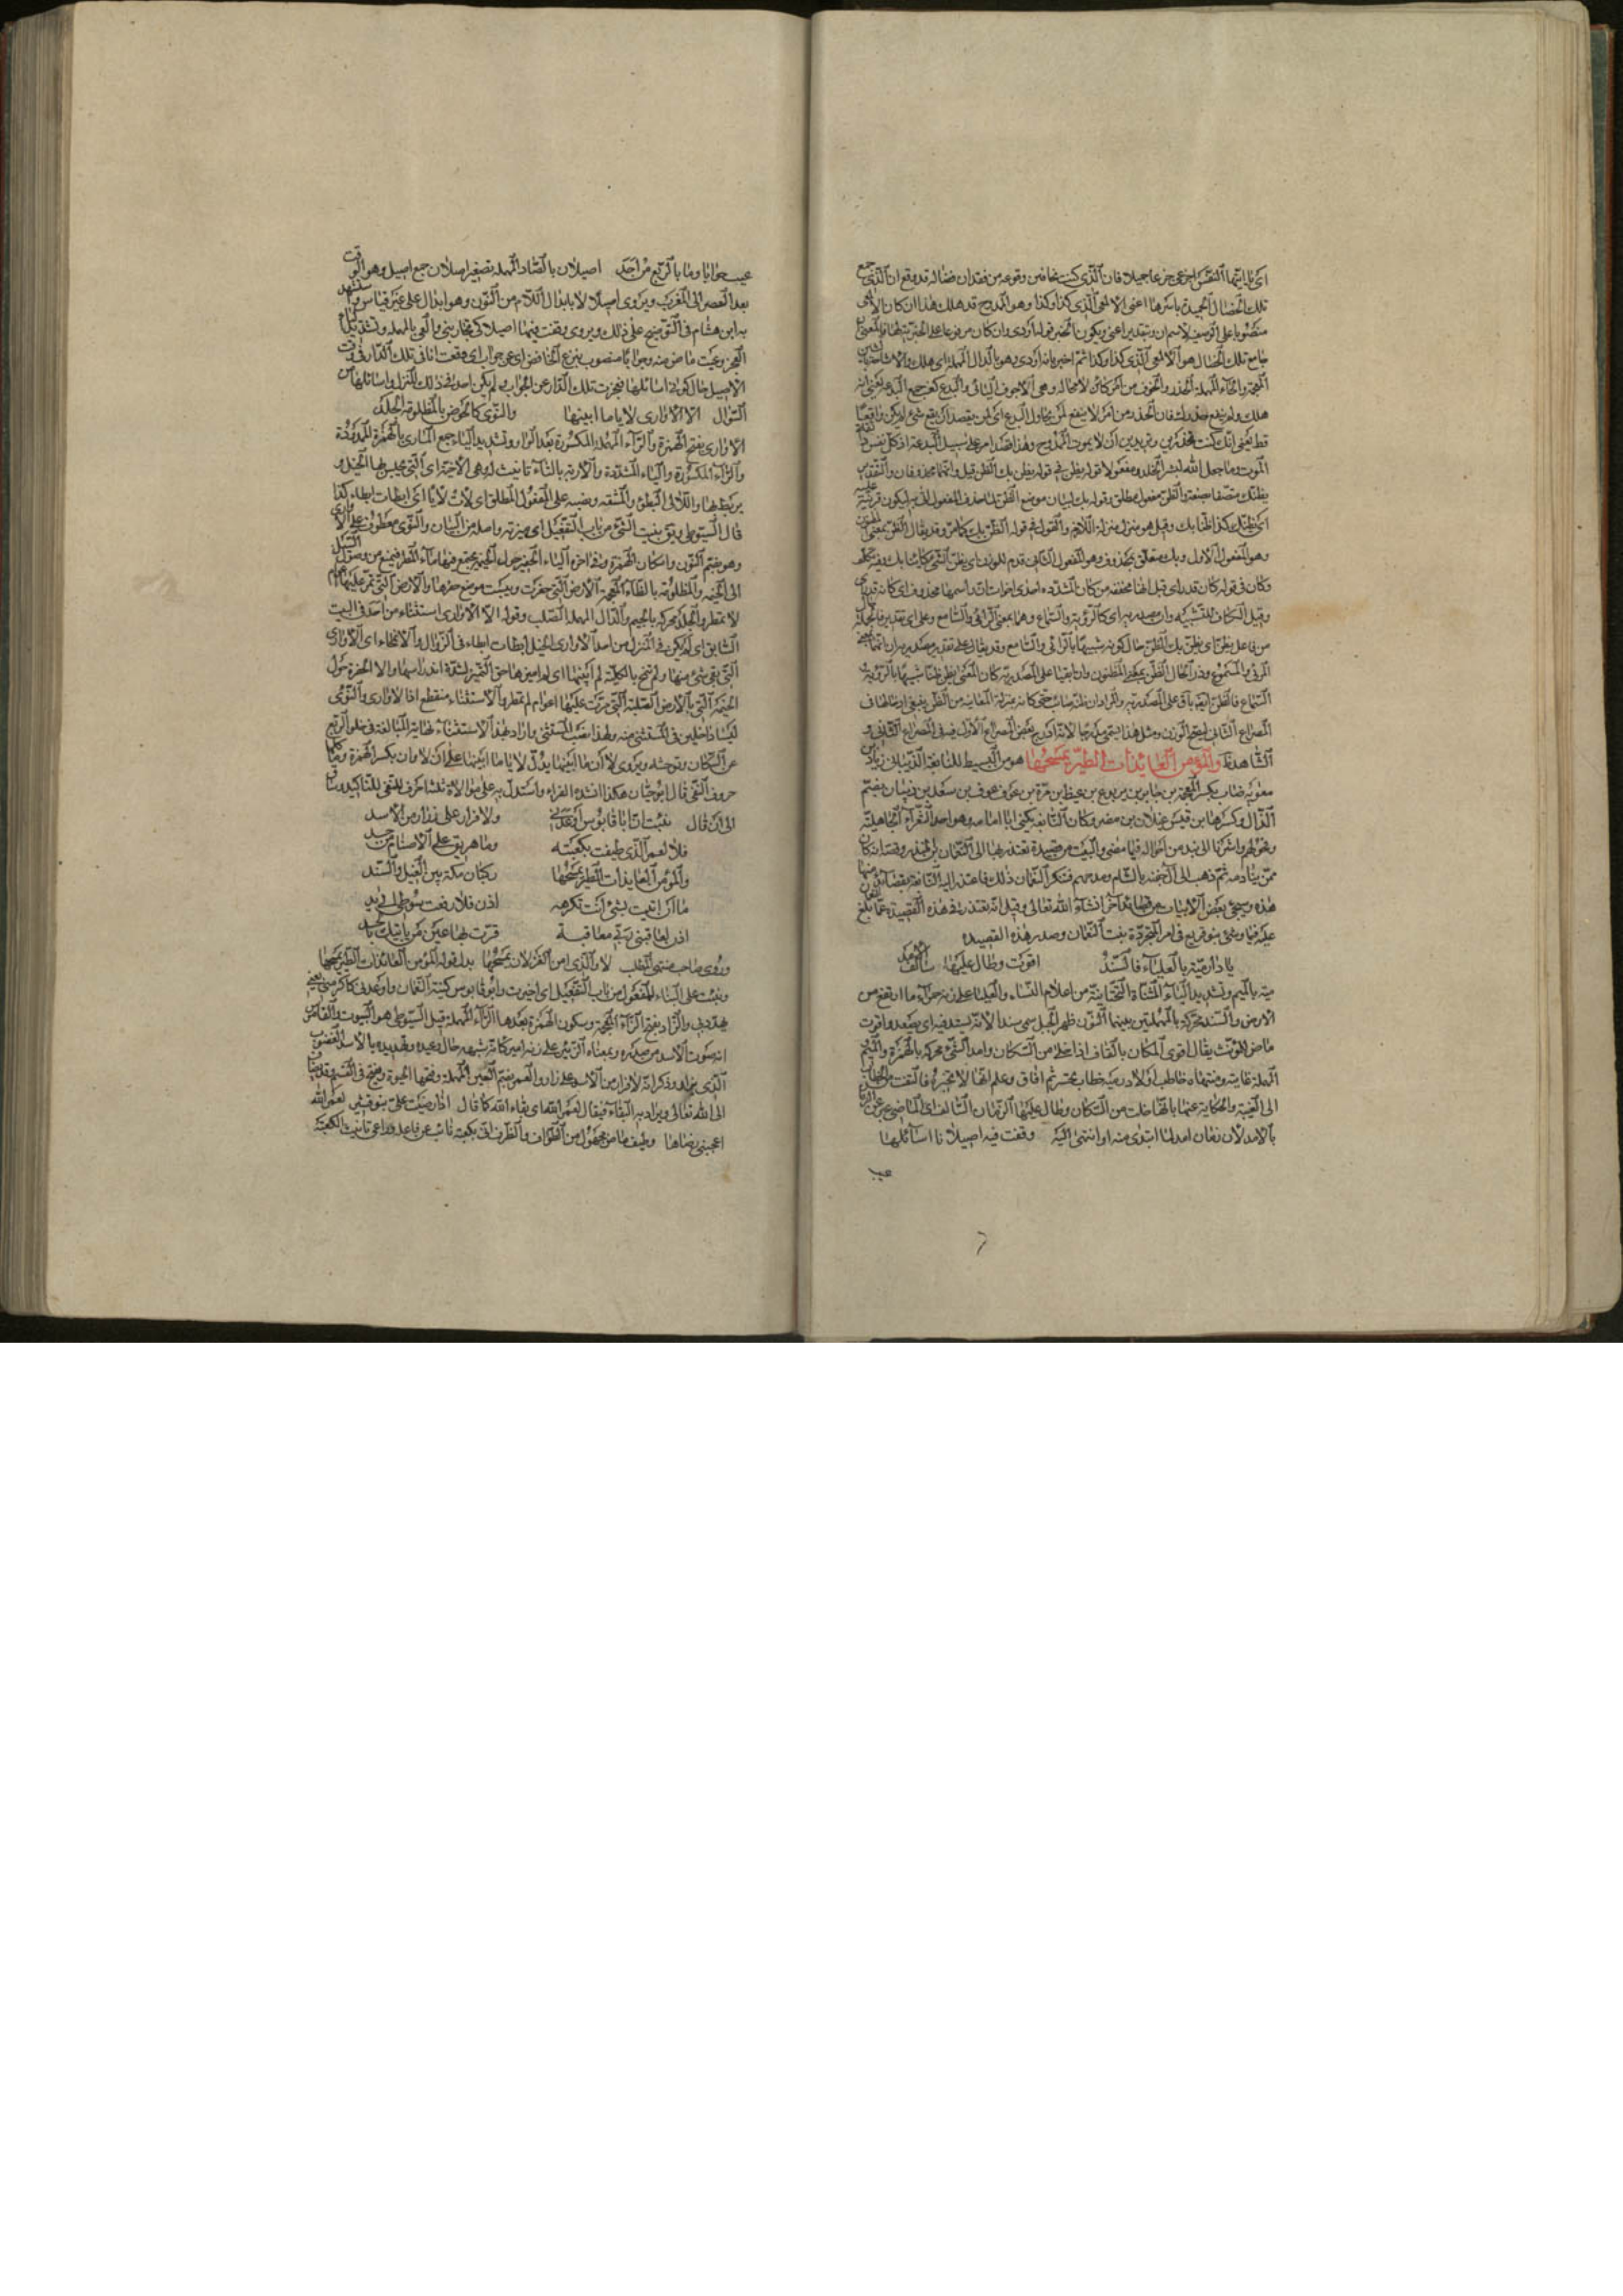 اى يا ايتها النفس اجزعى جزعا جميلا فان الذى كنت تخافين وقوعه من فقدان فضاله قد وقع ان الذى جمع
تلك الخصال الحميدة باسرها اعنى الالمعى الذى كذا وكذا وهو الممدوح قد هلك هذا ان كان الالمعى
منصوبا على الوصف لاسم ان وبتقدير اعنى ويكون الخبر قوله اودى وان كان مرفوعا على الخبرية لها فالمعنى ان
جامع تلك الخصال هو الالمعى الذى كذا وكذا ثم اخبر بانه اودى وهو بالدال المهملة اى هلك والاشاحة بالشين
المعجمة والحاء المهملة الحذر والخوف من امر كائن لا محالة وهى الاجوف اليائى والبدع كعنب جمع البدعة يعنى انه
هلك ولم ينفع حذرك فان الحذر من امر لا ينفع لمن يحاول البدع اى لمن يقصد ان يقع شئ لم يكن واقعا
قط يعنى انك كنت تحذرين وتريدين ان لا يموت الممدوح وهذا قصد امر على سبيل البدعة اذ كل نفس ذائقة
الموت وما جعل الله لبشر الخلد ومفعولا قوله يظن فى قوله يظن بك الظن قيل وانهما محذوفان والتقدير
يظنك متصفا بصفة والظن مفعول مطلق وقوله بك لبيان موضع الظن لما حذف المفعول للذى ليكون قرينة عليه
اى يظنك كذا ظنا بك وقيل هو منزل منزلة اللازم والقول فى قوله الظن بك كما مر وقد يقال الظن بمعنى المظنون
وهو المفعول الاول وبك متعلق بمحذوف وهو المفعول الثانى قدم للوزن اى يظن الشئ كائنا بك وفيه تكلف
وكان فى قوله كان قد راى قيل انها مخففة من كان المشددة احدى اخوات ان واسمها محذوف اى كانه قد راى
وقيل الكاف للتشبيه وان مصدرية اى كالرؤية والسماع وهما بمعنى الرائى والسامع وعلى اى تقدير فالجملة حال
من فاعل يظن اى يظن بك الظن حال كونه شبيها بالرائى والسامع وقد يقال على تقدير مصدرية ان انهما بمعنى
المرئى والمسموع وذو الحال الظن بمعنى المظنون وان بقيا على المصدرية كان المعنى يظن ظنا شبيها بالرؤية و
السماع فالظن ايضا باق على المصدرية والمراد ان ظنه صائب حتى كانه بمنزلة المعاينة من الظن ينبغى ارجاعها فى
المصراع الثانى ليصح الوزن ومثل هذا يسمى مدرجا لانه ادرج بعض المصراع الاول فى المصراع الثانى و
الشاهد فى والمؤمن العائذات الطير يمسحها هو من البسيط للنابغة الذبيانى زياد بن
معوية ضباب بكسر المعجمة بن جابر بن يربوع بن غيظ بن مرة بن عوف بن سعد بن ذبيان بضم
الذال وكسرها بن قيس عيلان بن مضر وكان النابغة يكنى ابا امامة وهو احد الشعراء الجاهلية
وفحولهم واشرنا الى نبذ من احواله فيما مضى والبيت من قصيدة تعتذر بها الى النعمان بن المنذر وقصته انه كان
ممن ينادمه ثم ذهب الى آل جفنة بالشام ومدحهم فتنكر النعمان ذلك فاعتذر اليه النابغة بقصائد منها
هذه وسيجئ بعض الابيات من قصائد اخر انشاء الله تعالى وقيل انه تعتذر فى هذه القصيدة عما بلغ النعمان
عليه فيما وشى بنو قريع فى امر المتجردة بنت النعمان وصدر هذه القصيدة
يا دار مية بالعلياء فالسند اقوت وطال عليها سالف الامد
مية بالميم وتشديد الياء المثناة التحتانية من اعلام النساء والعلياء على زنة حمراء ما ارتفع من
الارض والسند محركة بالمهملتين بينهما النون ظهر الجبل سمى سندا لانه يستند فيه اى يصعد واقوت
ماض للمؤنث يقال اقوى المكان بالقاف اذا خلا من السكان وامد الشئ محركة بالهمزة والميم
المهملة غايته ومنتهاه خاطب اولا دار مية خطاب تحسر ثم افاق وعلم انها لا تخبره فالتفت من الخطاب
الى الغيبة والحكاية عنها بانها خلت من السكان وطال عليها الزمان السالف اى الماضى عبر عن الزمان
بالامد لان زمان امد لما ابتدئ منه او انتهى اليه وقفت فيه اصيلانا اسائلها
عيت
عيت جوابا وما بالربع من احد اصيلان بالصاد المهملة تصغير اصلان جمع اصيل وهو الوقت
بعد العصر الى المغرب ويروى اصيلالا بابدال اللام من النون وهو ابدال على غير قياس واستشهد
به ابن هشام فى التوضيح على ذلك ويروى وقفت فيها اصيلا كى تجاوبنى والعى بالمهملة وتشديد الياء
العجز وعيت ماض منه وجوابا منصوب بنزع الخافض اى عن جواب اى وقفت انا فى تلك الدار فى وقت
الاصيل حال كونى اسائلها فعجزت تلك الدار عن الجواب ولم يكن احد فى ذلك المنزل واسائلها من
السؤال الا الاوارى لايا ما ابينها والنوى كالحوض بالمظلومة الجلد
الاوارى بفتح الهمزة والراء المهملة المكسورة بعد الواو وتشديد الياء جمع الارى بالهمزة الممدودة
والراء المكسورة والياء المشددة والارية بالتاء تانيث له وهى الاخية اى التى يحبس بها الخيل و
يربط بها واللاى البطؤ والمشقة ونصبه على المفعول المطلق اى لات لايا اى ابطات ابطاء كذا
قال السيوطى وبينت الشئ من باب التفعيل اى ميزته واصله من البيان والنوى معطوف على الاوارى
وهو بضم النون واسكان الهمزة وفى اخره الياء الحفير حول الخيمة يجتمع فيها ماء المطر فيمنع من وصول السيل
الى الخيمة والمظلومة بالظاء المعجمة الارض التى حفرت وليست موضع حفرها والارض التى تمر عليها اعوام
لا تمطر والجلد محركة بالجيم والدال المهملة الصلب وقوله الا الاوارى استثناء من احد فى البيت
السابق اى لم يكن فى المنزل من احد الا اوارى الخيل ابطات ابطاء فى الزوال والانمحاء اى الاوارى
التى بقى شئ منها ولم تمح بالكلية لم ابينها اى لم اميزها حق التمييز لشدة اندراسها والا الحفرة حول
الخيمة التى بالارض الصلبة التى مرت عليها اعوام لم تمطر والاستثناء منقطع اذ الاوارى والنؤى
ليسا داخلين فى المستثنى منه ولهذا نصب المستثنى واراد بهذا الاستثناء نهاية المبالغة فى خلو الربع
عن السكان وتوحشه ويروى لا ان ما ابينها بدل لايا ما ابينها على ان لا وان بكسر الهمزة وما كلها
حروف النفى قال ابو حيان هكذا انشده الفراء واستدل به على موالاة ثلثة احرف للنفى للتاكيد
الى ان قال نبئت ان ابا قابوس اوعدنى ولا قرار على زأر من الاسد
فلا لعمر الذى طيفت بكعبته وما هريق على الاصنام من جسد
والمؤمن العايذات الطير يمسحها ركبان مكة بين الغيل والسند
ما ان اتيت بشئ انت تكرهه اذن فلا رفعت سوطى الى يدى
اذن لعاقبنى ربى معاقبة قرت بها عين من ياتيك بالحسد
وروى صاحب منتهى الطلب لا والذى امن الغزلان يمسحها بدل قوله المؤمن العائذات الطير يمسحها
ونبئت على البناء للمفعول من باب التفعيل اى اخبرت وابو قابوس كنية النعمان واوعدنى كاكرمنى يعنى
هددنى والزأر بفتح الزاء المعجمة وسكون الهمزة بعدها الراء المهملة قيل السيوطى هو البيوت
انه صوت الاسد من صدره وبمعناه الزئير على زنة امير كانه شبهه حال وعيده وتهديده بالاسد الغضوب
الذى يزار وذكر انه لا قرار من الاسد على زار والعمر بضم العين المهملة وفتحها الحيوة وفتح فى القسم
الى الله تعالى ويراد به البقاء فيقال لعمر الله اى بقاء الله كما قال اذا رضيت على بنو قشير لعمر الله
اعجبنى رضاها وطيف ماض مجهول من الطواف والظرف اى بكعبته نائب عن فاعله وراعى تانيث الكعبة